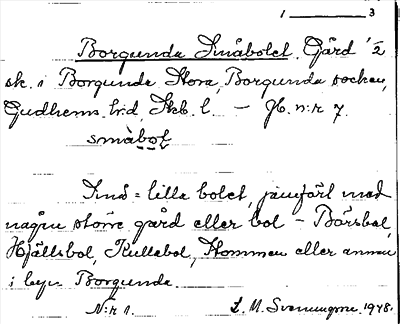 1 3
Borgunda Småbolet. Gård 1/2
sk. i Borgunda Stora, Borgunda socken,
Gudhems h:d Skb. l. – J. n:r 7.
småbol
Små = lilla bolet, jämfört med
någon större gård eller bol – Börsbol,
Hjällsbol, Kullabol, Stommen eller annan
i byn Borgunda.
N:r 1. L. M. Svenungsson. 1948.